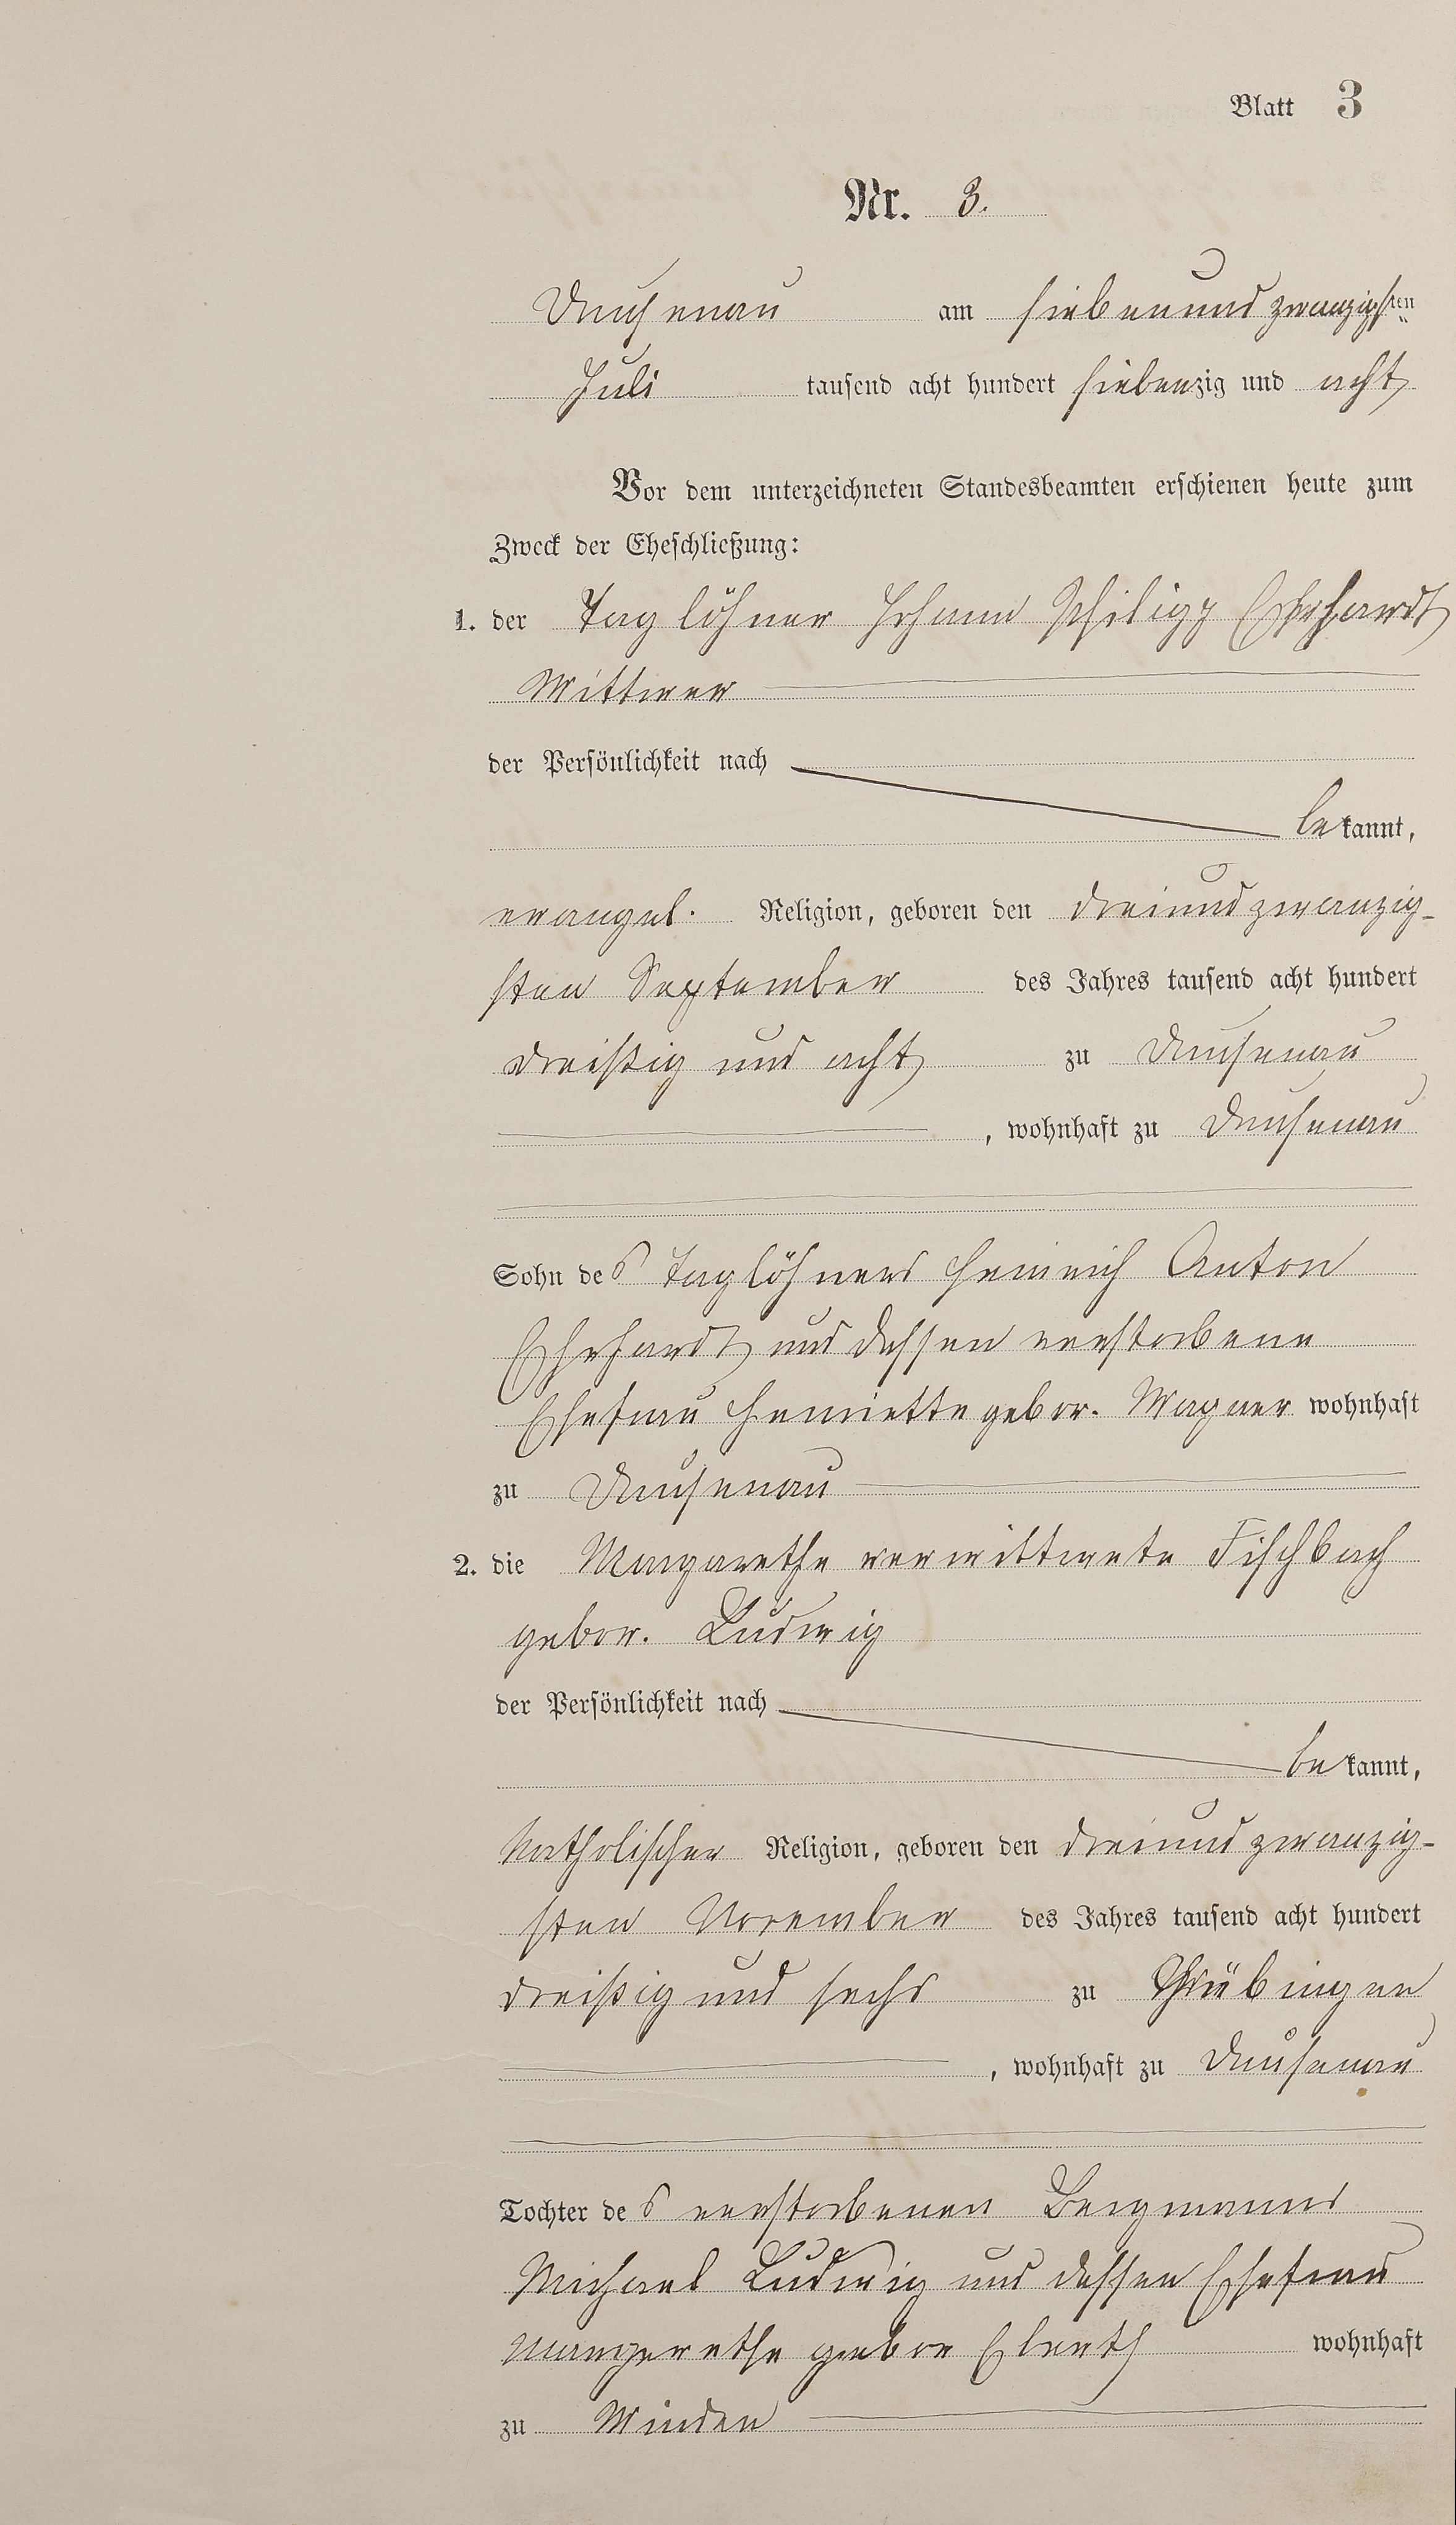 Blatt 3
Nr. 3.
Dausenau am siebenundzwanzigsten
Juli tausend acht hundert siebenzig und acht
Vor dem unterzeichneten Standesbeamten erschienen heute zum
Zweck der Eheschließung:
1. der Taglöhner Johann Philipp Ehrhardt
Wittwer
der Persönlichkeit nach
bekannt,
evangel. Religion, geboren den dreiundzwanzig-
sten September des Jahres tausend acht hundert
dreißig und acht zu Dausenau
, wohnhaft zu Dausenau
Sohn des Taglöhners Heinrich Anton
Ehrhardt und dessen verstorbene
Ehefrau Henriette gebor. Wagner wohnhaft
zu Dausenau
2. die Margarethe verwittwete Fischbach
gebor. Ludwig
der Persönlichkeit nach
bekannt,
katholischer Religion, geboren den dreiundzwanzig-
sten November des Jahres tausend acht hundert
dreißig und sechs zu
, wohnhaft zu Dausenau
Tochter des verstorbenen Bergmanns
Michael Ludwig und dessen Ehefrau
Margarethe gebor
wohnhaft
zu Minden